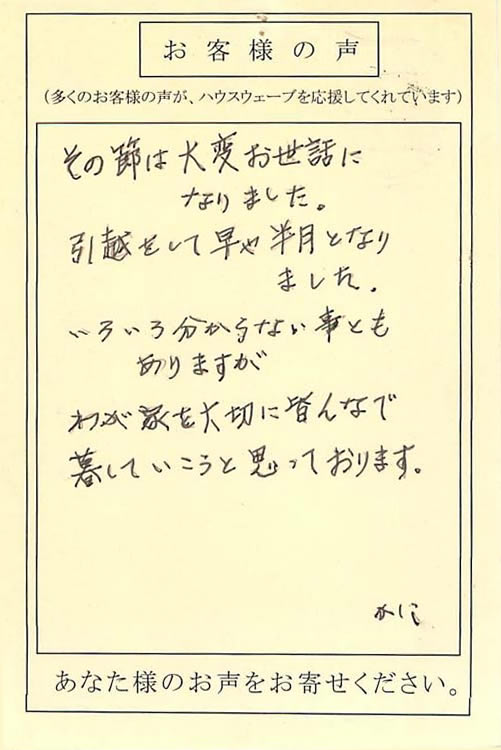 お客様の声
（多くのお客様の声が、ハウスウェーブを応援してくれています）
その節は大変お世話に
なりました。
引越をして早や半月となり
ました。
いろいろ分からない事とも
ありますが
わが家を大切に皆んなで
暮していこうと思っております。
かに
あなた様のお声をお寄せください。